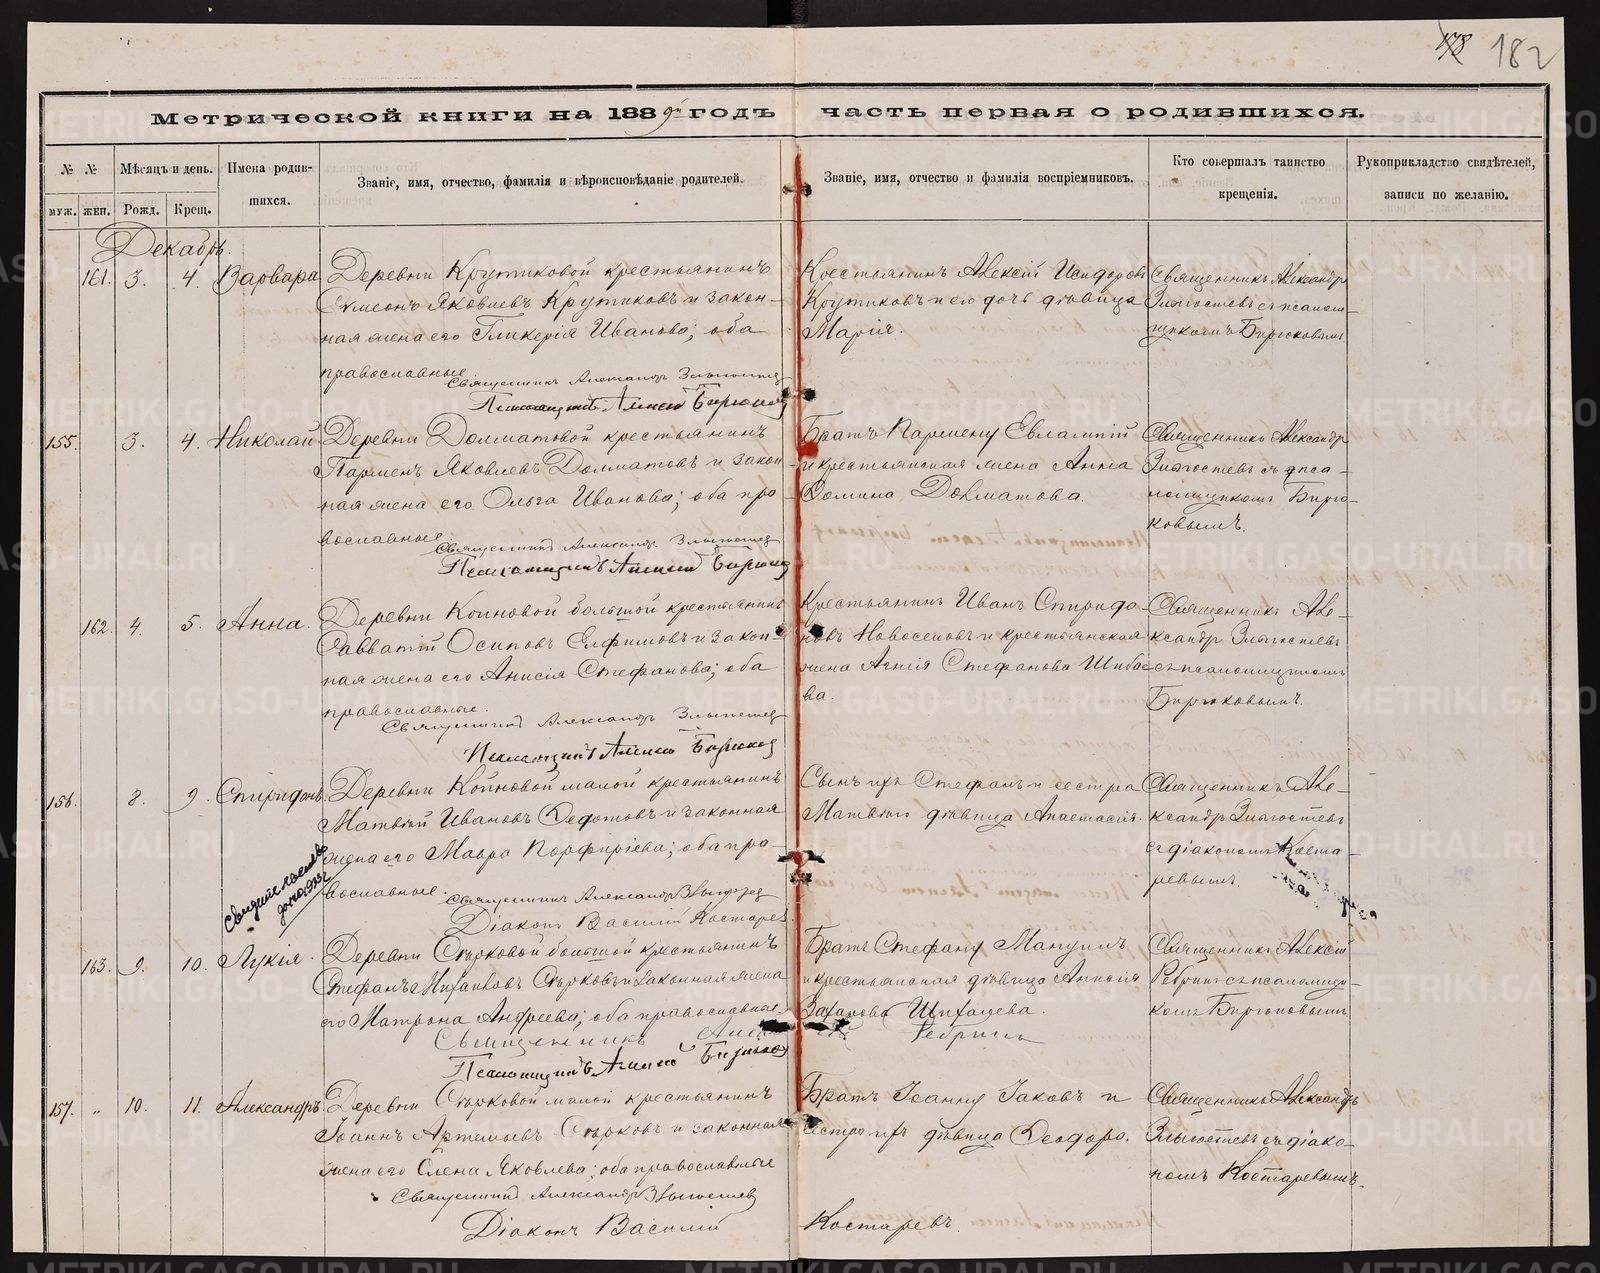 178 182
Метрической книги на 1889й годъ часть первая о родившихся.
№ № Мѣсяцъ и день. Имена родив-
шихся.
муж. жен. Рожд. Крещ.
Званіе, имя, отчество, фамилія и вѣроисповѣданіе родителей.
Званіе, имя, отчество и фамилія воспріемниковъ.
Кто совершалъ таинство
крещенія.
Рукоприкладство свидѣтелей,
записи по желанію.
Декабрь.
161. 3. 4. Варвара
Деревни Крутиковой крестьянинъ
Симеонъ Яковлевъ Крутиковъ и закон-
ная жена его Гликерія Иванова; оба
православные.
Священникъ Александръ Злыгостев
Псаломщикъ Алексѣй Бирюков
Крестьянинъ Алексій Исидоровъ
Крутиковъ и его дочь дѣвица
Марія.
Священникъ Александръ
Злыгостевъ съ псалом-
щикомъ Бирюковымъ
155. 3. 4. Николай
Деревни Долматовой крестьянинъ
Парменъ Яковлевъ Долматовъ и закон-
ная жена его Ольга Иванова; оба пра-
вославные.
Священникъ Александръ Злыгостев
Псаломщикъ Алексѣй Бирюков
Братъ Пармену Евлампій
и крестьянская жена Анна
Фомина Долматова.
Священникъ Александръ
Злыгостевъ съ пса-
ломщикомъ Бирю-
ковымъ.
162. 4. 5. Анна.
Деревни Койновой большой крестьянинъ
Савватій Осиповъ Ефимовъ и закон-
ная жена его Анисія Стефанова; оба
православные.
Священникъ Александръ Злыгостев
Псаломщикъ Алексѣй Бирюков
Крестьянинъ Иванъ Спиридо-
новъ Новоселовъ и крестьянская
жена Агнія Стефанова Шибае-
ва.
Священникъ Але-
ксандръ Злыгостевъ
съ псаломщикомъ
Бирюковымъ.
156. 8. 9. Спиридонъ.
Деревни Койновой малой крестьянинъ
Матвѣй Ивановъ Федотовъ и законная
жена его Мавра Порфиріева; оба пра-
вославные.
Священникъ Александръ Злыгостев
Діаконъ Василій Костарев
Сынъ ихъ Стефанъ и сестра
Матвѣю дѣвица Анастасія.
Священникъ Але-
ксандръ Злыгостевъ
съ діакономъ Коста-
ревымъ.
163. 9. 10. Лукія.
Деревни Сырковой большой крестьянинъ
Стефанъ Михаиловъ Сырковъ и законная жена
его Матрона Андреева; оба православные.
Священникъ Алексій Ребринъ
Псаломщикъ Алексѣй Бирюков
Братъ Стефану Мануилъ
и крестьянская дѣвица Анисія
Захарова Шихалева.
Священникъ Алексій
Ребринъ съ псаломщи-
комъ Бирюковымъ
157. „ 10. 11. Александръ.
Деревни Сырковой малой крестьянинъ
Іоаннъ Артемьевъ Сырковъ и законная
жена его Елена Яковлева; оба православные
Священникъ Александръ Злыгостев
Діаконъ Василій Костаревъ.
Братъ Іоанну Іаковъ и
сестра ихъ дѣвица Феодора.
Священникъ Александръ
Злыгостевъ съ діако-
номъ Костаревымъ.